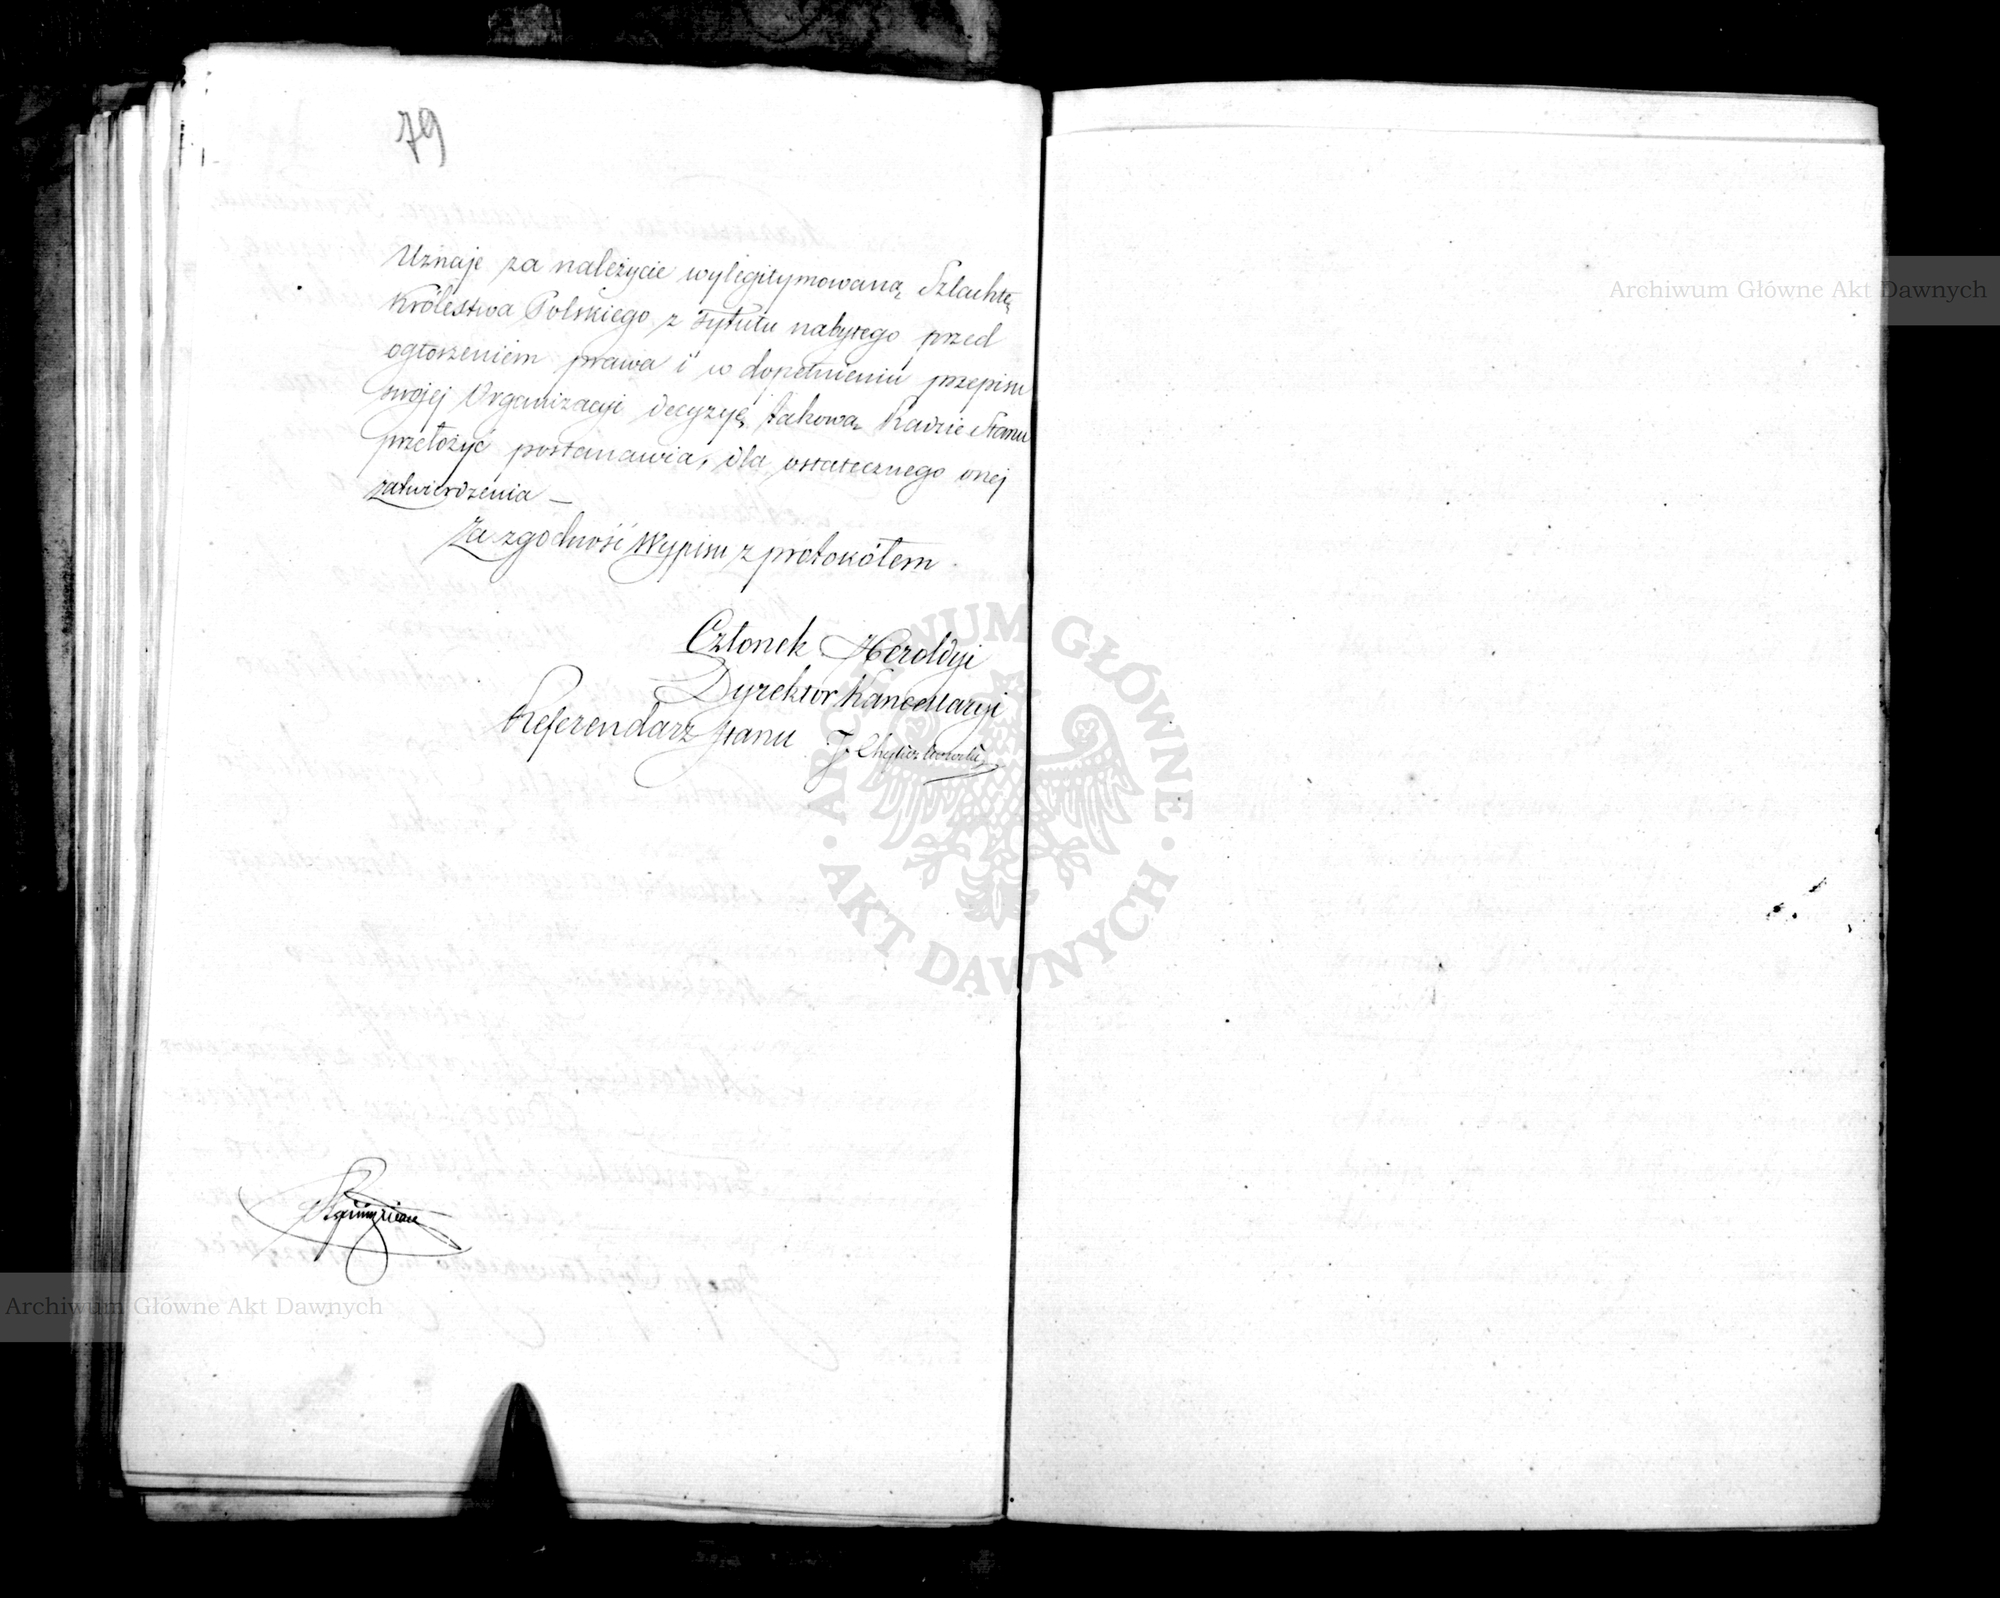 79
Uznaje za należycie wylegitymowaną Szlachtę
Królestwa Polskiego z tytułu nabytego przed
ogłoszeniem prawa i w dopełnieniu przepisu
swojej Organizacyi decyzyę takową Radzie Stanu
przełożyć postanawia, dla ostatecznego onej
zatwierdzenia —
Za zgodność Wypisu z protokółem
Członek Heroldyi
Dyrektor Kancellaryi
Referendarz Stanu
Archiwum Główne Akt Dawnych
ARCHIWUM GŁÓWNE
AKT DAWNYCH
Archiwum Główne Akt Dawnych